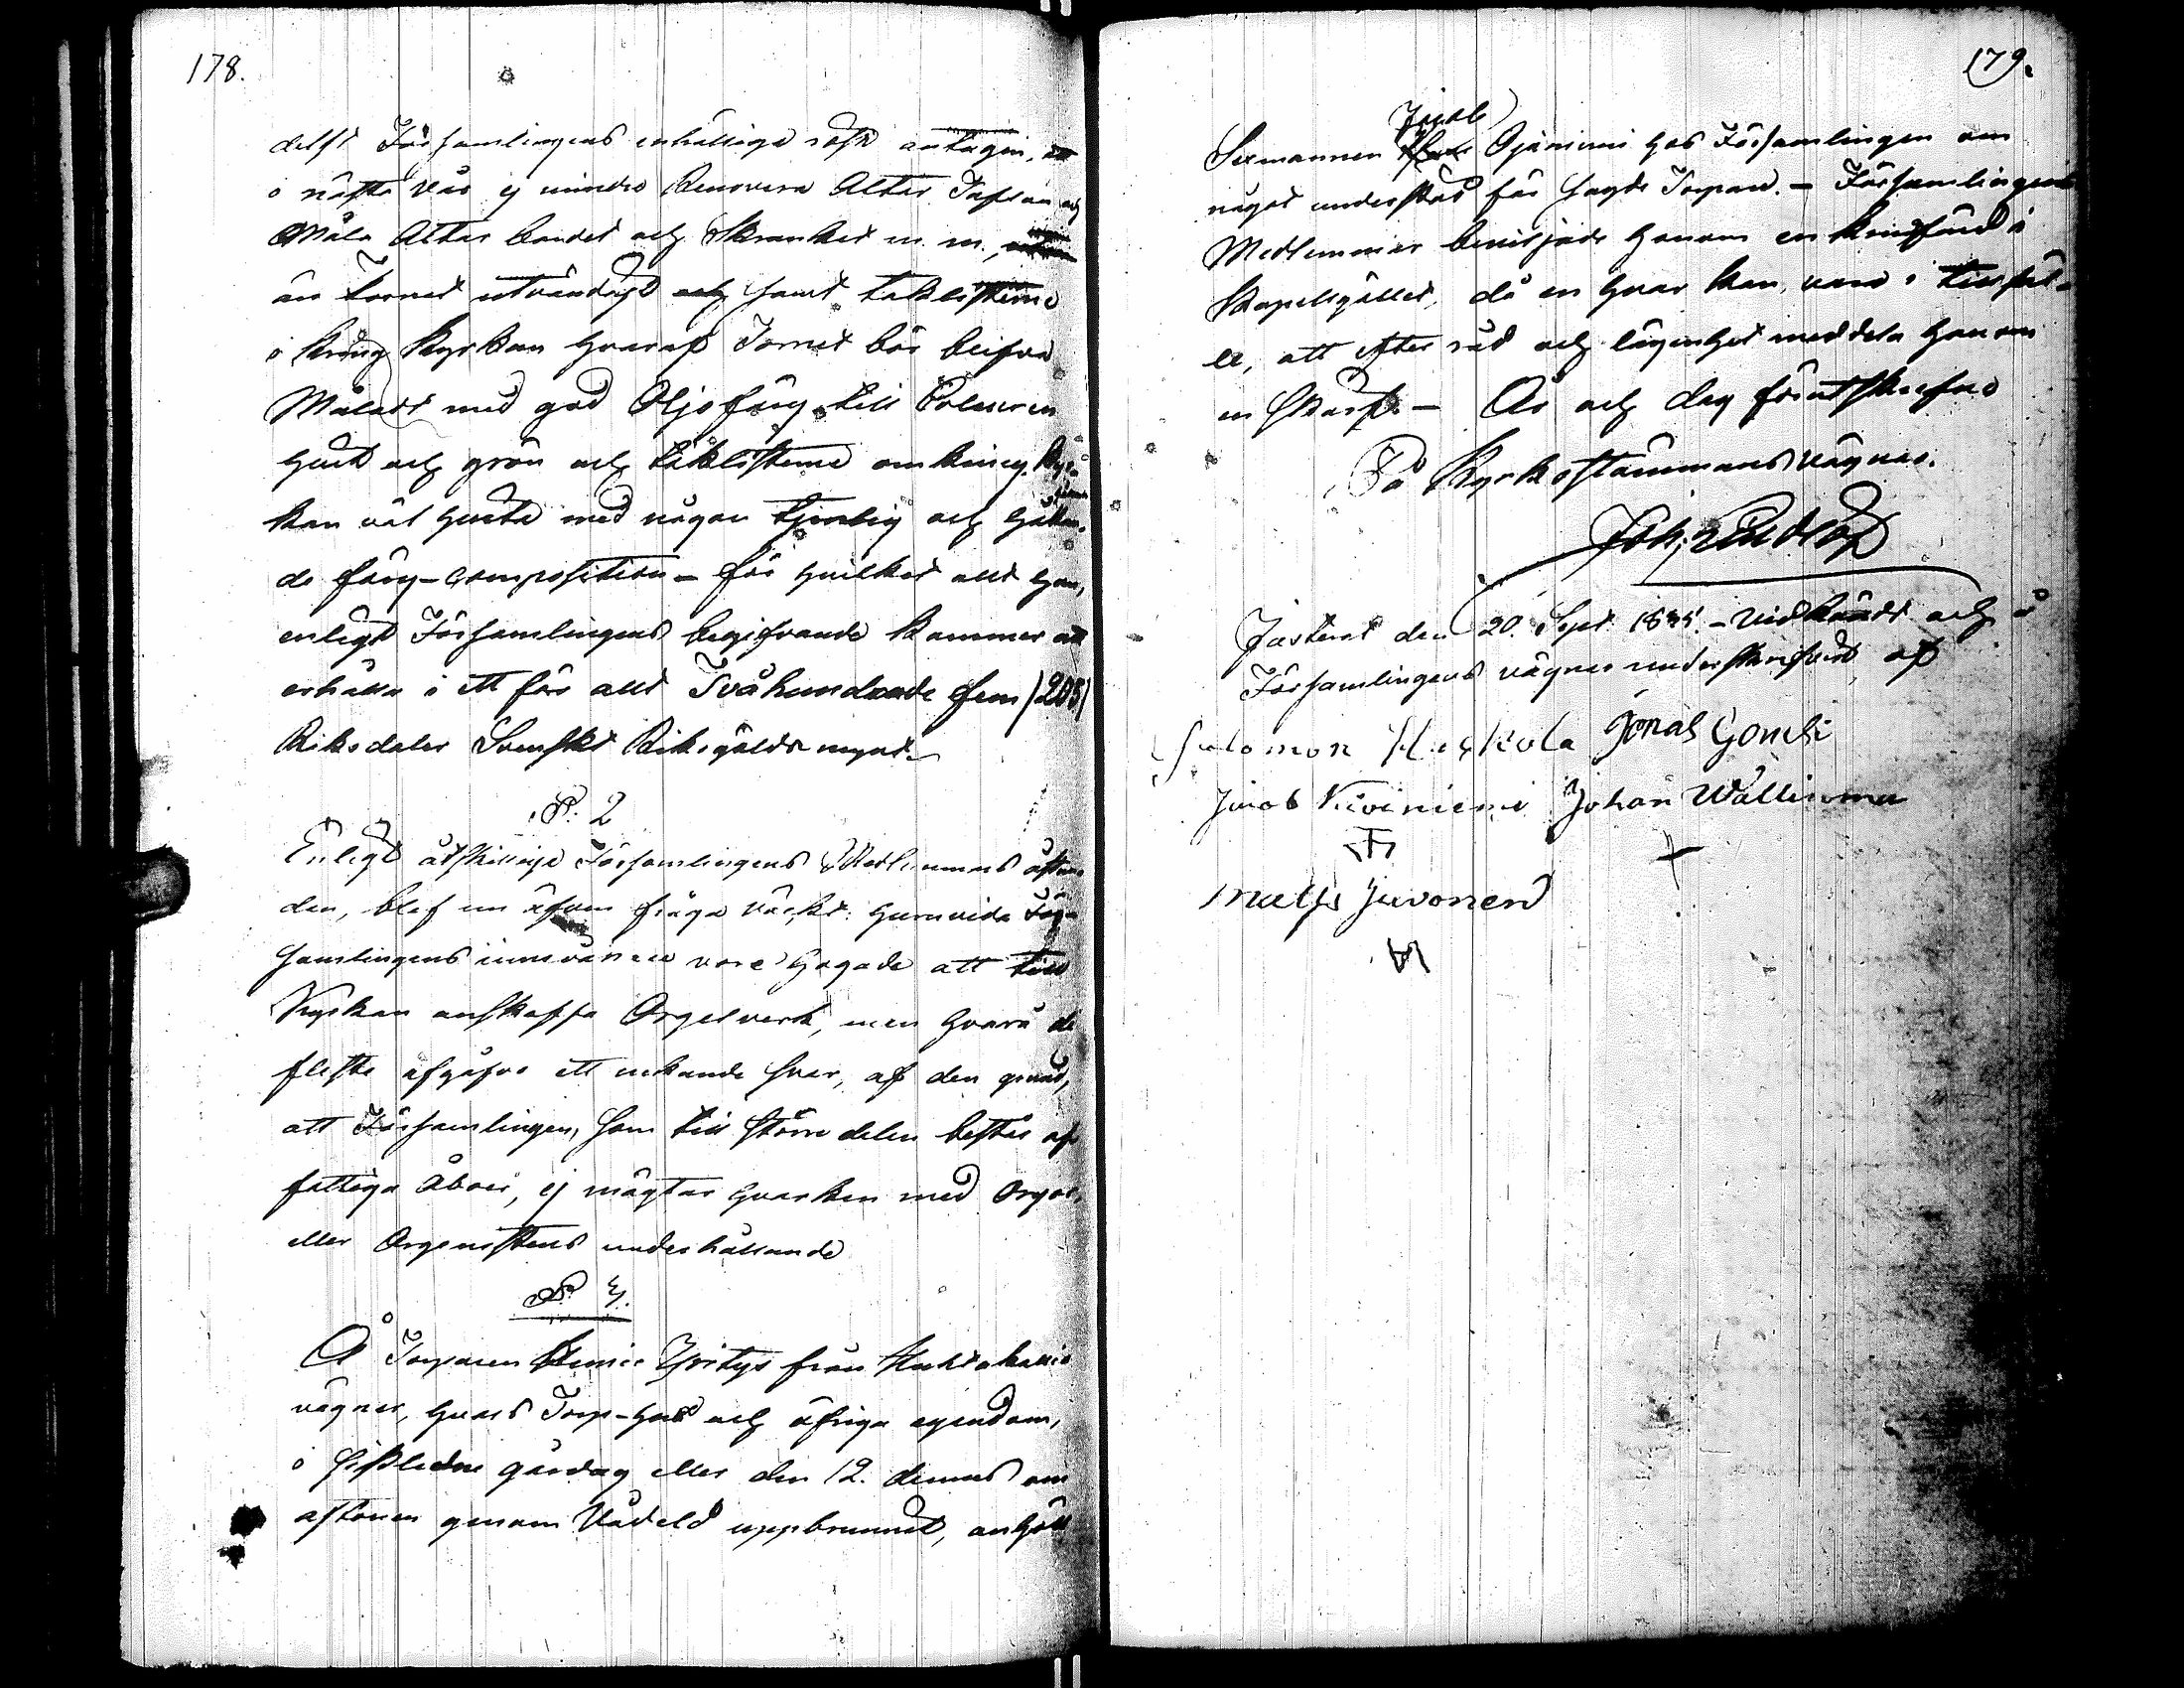 178.
delst Församlingens enhälliga röst antagen, att
i nästa vår ej mindre Renovera Altar Taflan och
Måla Altar bordet och Skranket m. m.,
än Tornet utvändigt och samt taklisterne
i kring Kyrkan hvaraf Tornet bör blifva
Måladt med god Oljefärg till Coleuren
hvit och grön och taklisterne omkring Kyr-
kan väl hvita med någon tjenlig och hållan-
de färg-composition – för hvilket allt han,
enligt Församlingens begifvande kommer att
erhålla i ett för allt Tvåhundrade fem (205)
Riksdaler Svenskt Riksgälds mynt.
§. 2
Enligt åtskillige Församlingens Medlemmars åstun-
dan, blef nu äfven fråga väckt: huruvida För-
samlingens innevånare vore hogade att till
Kyrkan anskaffa Orgelverk, men hvarå de
fleste afgåfvo ett nekande svar, af den grund,
att Församlingen, som till större delen består af
fattiga Åboer, ej mägtar hvarken med Orgor,
eller Orgenistens underhållande
§ 3.
Å Torparen Yritys från Huhtakallio
vägnar, hvars Torp-hus och öfriga egendom,
i sistledne gårdag eller den 12. dennes om
aftonen genom Vådeld uppbrunnit, anhöll
179.
Jacob
Sexmannen Ojaniemi hos Församlingen om
något understöd för sagde Torpare. – Församlingens
Medlemmar beviljade honom en kringfärd i
Kapellgället, då en hvar kan, vara i tillfäl-
le, att efter råd och lägenhet meddela honom
en skärf. – År och dag förutskrefne
På Kyrkostämmans vägnar.
Joh:
Justerat den 20. Sept. 1845. – vidkändt och å
Församlingens vägnar underskrifvit, af
Salomon Jonas
Jacob Kiviniemi Johan
Matts Juvonen